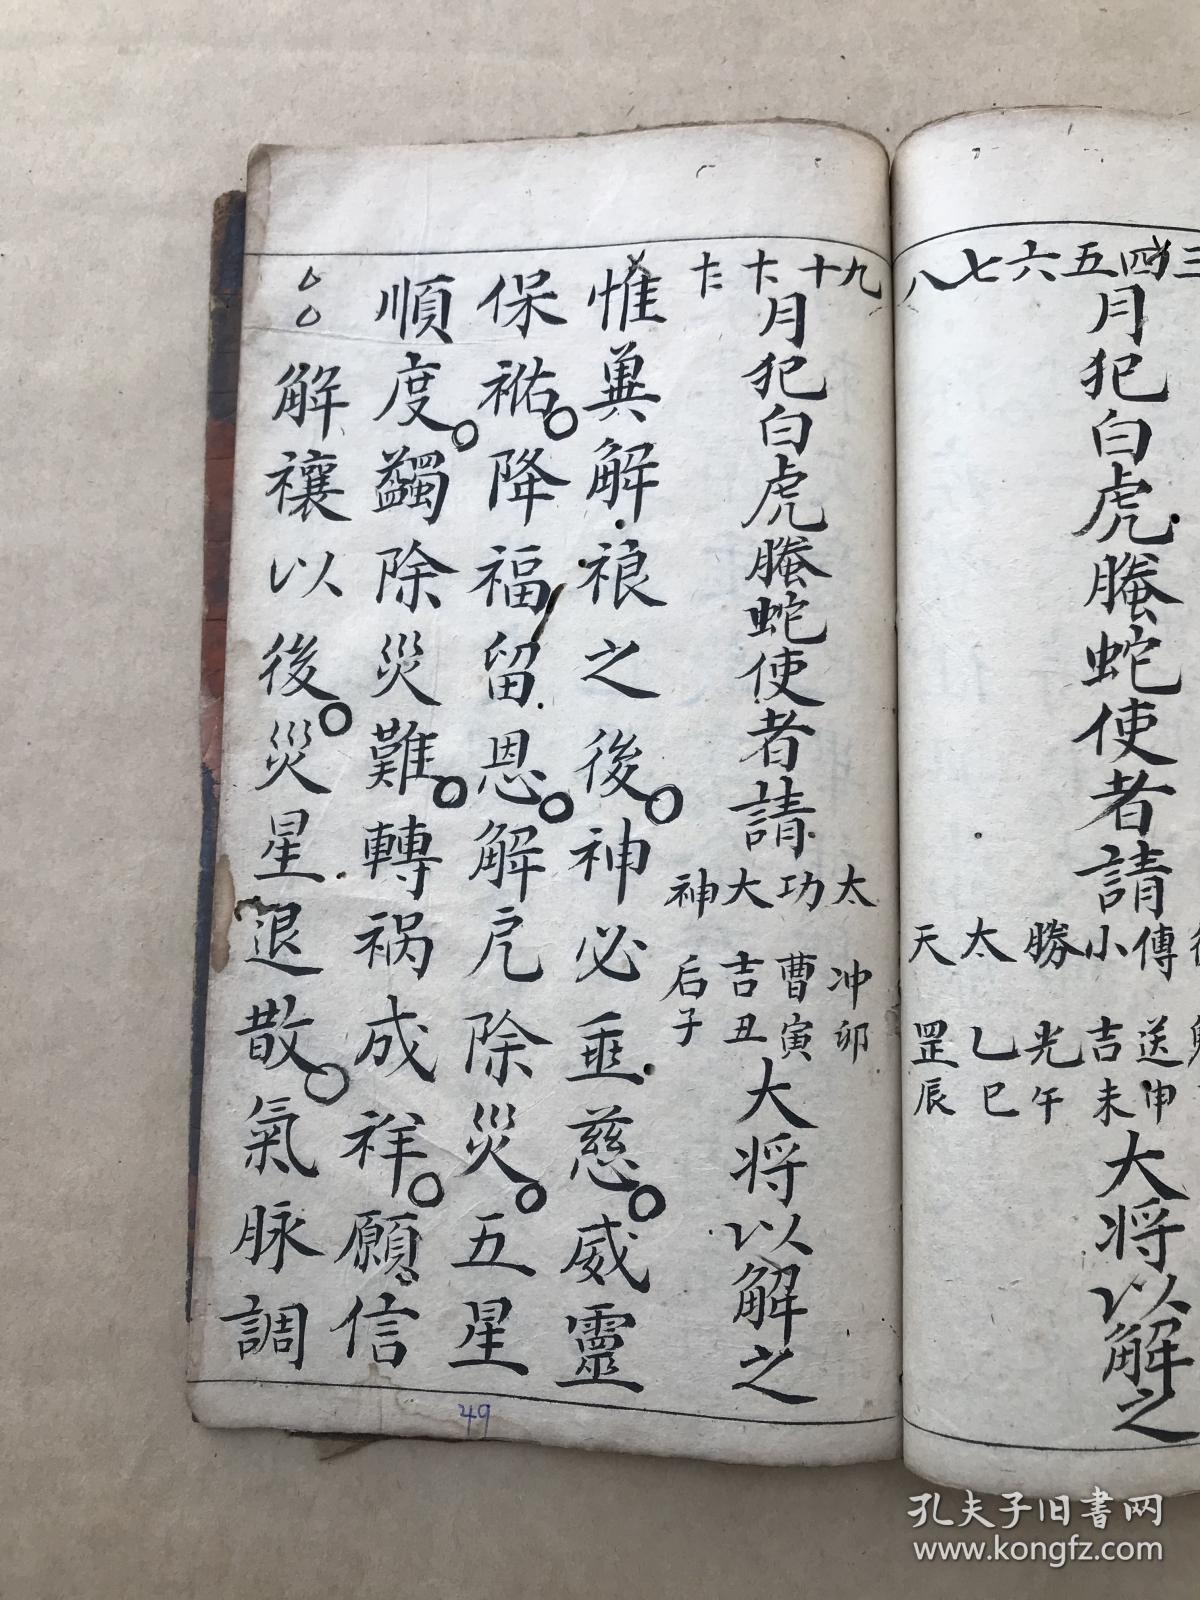 三四五六七八
月犯白虎螣蛇使者請
傳送申
小吉未
勝光午
太乙巳
天罡辰
大将以解之
九十十一十二
月犯白虎螣蛇使者請
太冲卯
功曹寅
大吉丑
神后子
大将以解之
惟兾解禳之後。神必垂慈。威靈
保祐。降福留恩。解厄除災。五星
順度。蠲除災難。轉禍成祥。願信
解禳以後。災星退散。氣脉調
49
孔夫子旧书网
www.kongfz.com